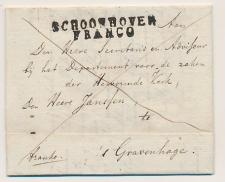 SCHOONHOVEN
FRANCO
Aan
Den Heere Secretaris en Adviseur
bij het Departement voor de zaken
der Hervormde Kerk,
Den Heere Janssen,
te
Franko. 's Gravenhage.